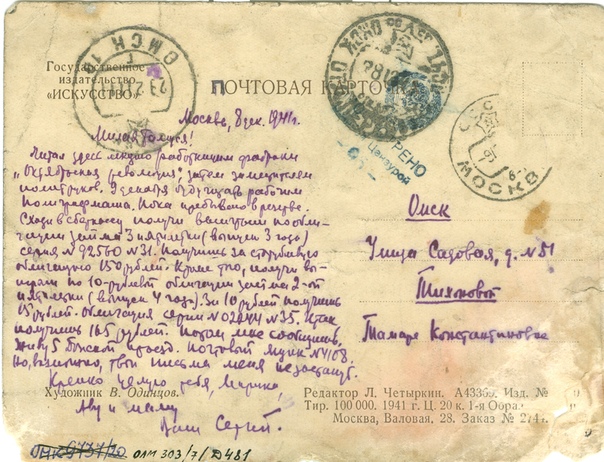 Государственное
издательство
«ИСКУССТВО»
ПОЧТОВАЯ КАРТОЧКА
ОМСК
МОСКВА
Цензурой
Москва, 8 дек. 1941 г.
Милая Томуся!
Читал здесь лекцию работницам фабрики
"Октябрьская революция", затем заместителям
политруков. 9 декабря буду читать рабочим
Полиграфмаша. Пока пребываю в резерве.
Сходи в сберкассу получи выигрыш по обли-
гации займа 3 пятилетки (выпуск 3 года)
серия № 92560 № 31. Получишь за сторублевую
облигацию 150 рублей. Кроме того, получи вы-
игрыш по 10-рублевой облигации займа 2-ой
пятилетки (выпуск 4 года). За 10 рублей получишь
15 рублей. Облигация серии № 02044 № 35. Итак
получишь 165 рублей. Потом мне сообщишь.
Живу 5 Донской проезд. Почтовый ящик № 4108.
Но, возможно, твои письма меня не застанут.
Крепко целую тебя, Марика,
Аву и маму
Ваш Сергей.
Омск
Улица Садовая, д. № 51
Тихоновой
Тамаре Константиновне
Художник В. Одинцов.
Редактор Л. Четыркин. А43355. Изд. №
Тир. 100 000. 1941 г. Ц. 20 к. 1-я Обра
Москва, Валовая, 28. Заказ № 274
ОМК 9737/20 ОЛМ 303/7/Д481